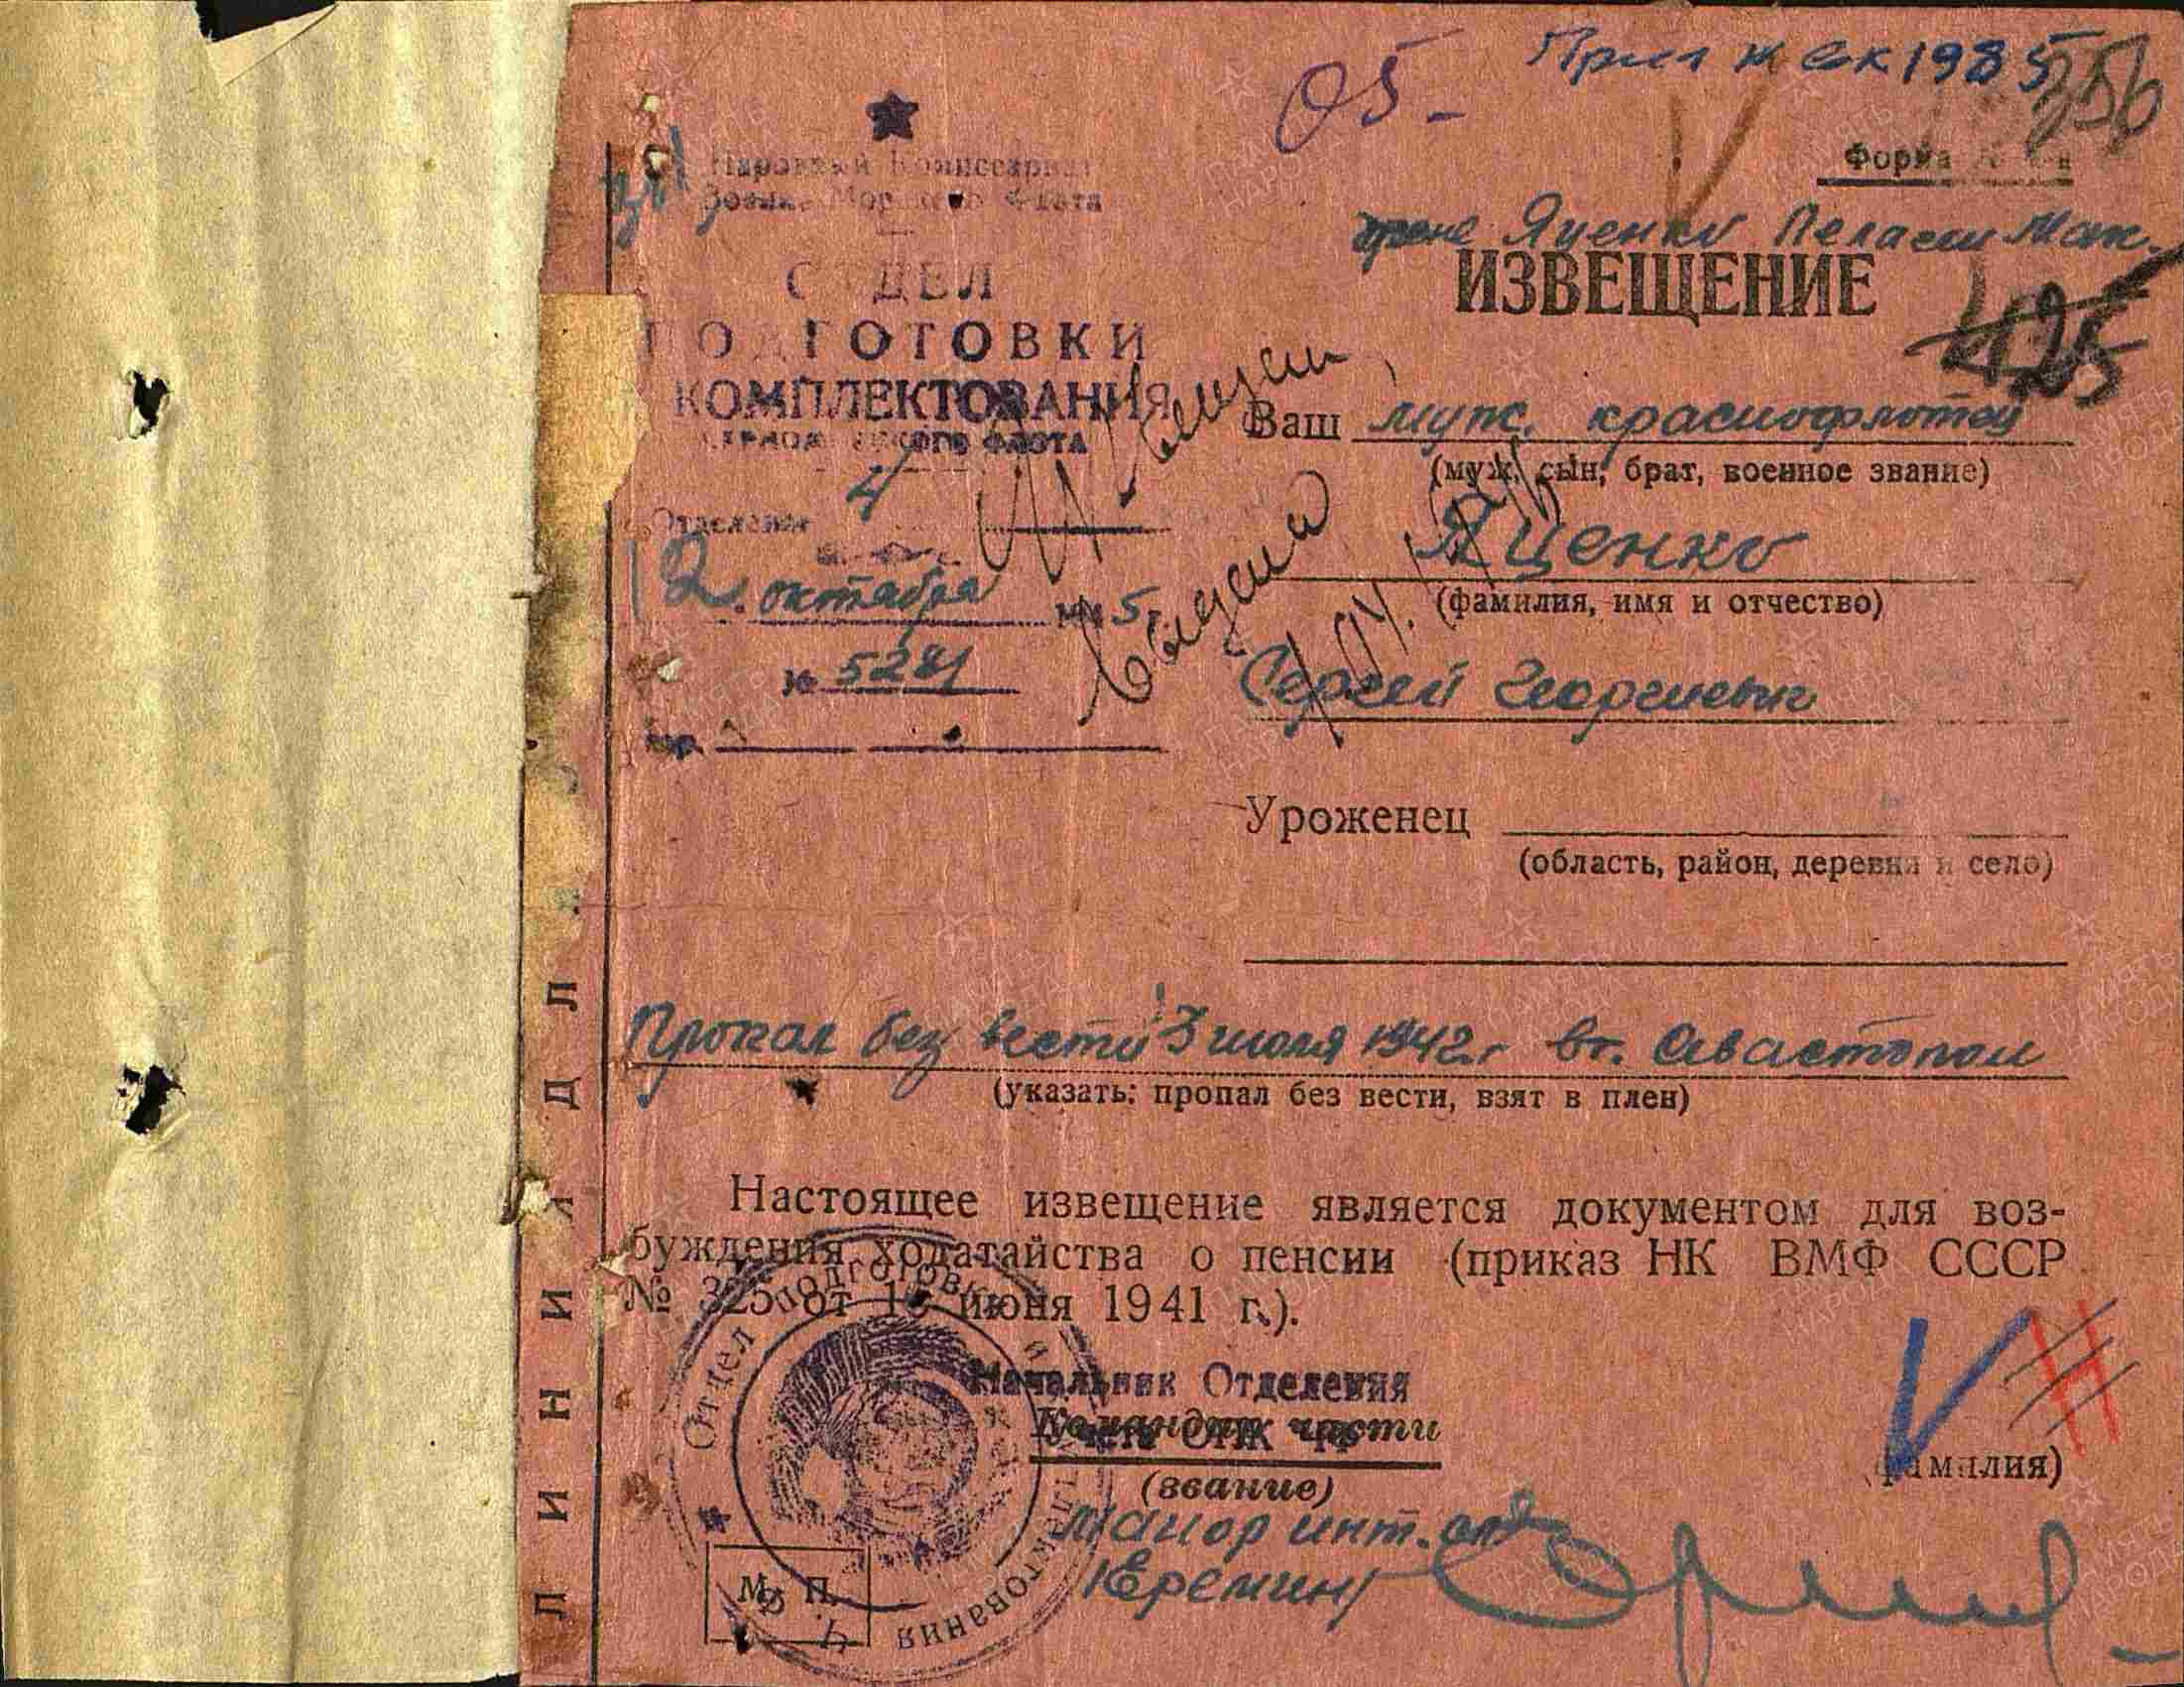 05-
356
Форма
Народный Комиссариат
Военно Морского Флота
ОТДЕЛ
ПОДГОТОВКИ
КОМПЛЕКТОВАНИЯ
ЧЕРНОМОРСКОГО ФЛОТА
Отделение 4
2 октября 1945 г.
№ 5281
Яценко
ИЗВЕЩЕНИЕ
425
Ваш муж. краснофлотец
(муж, сын, брат, военное звание)
Яценко
(фамилия, имя и отчество)
Сергей Георгиевич
Уроженец
(область, район, деревня и село)
Пропал без вести 3 июля 1942 г. в г. Севастополь
(указать: пропал без вести, взят в плен)
Настоящее извещение является документом для воз-
буждения ходатайства о пенсии (приказ НК ВМФ СССР
№ 325 от июня 1941 г.).
Начальник Отделения
Командир части
(звание)
(фамилия)
Майор инт. сл.
/Еремин/
М. П.
Отдел подготовки и комплектования
Ч. Ф.
ЛИНИЯ ДЛЯ
ПАМЯТЬ НАРОДА